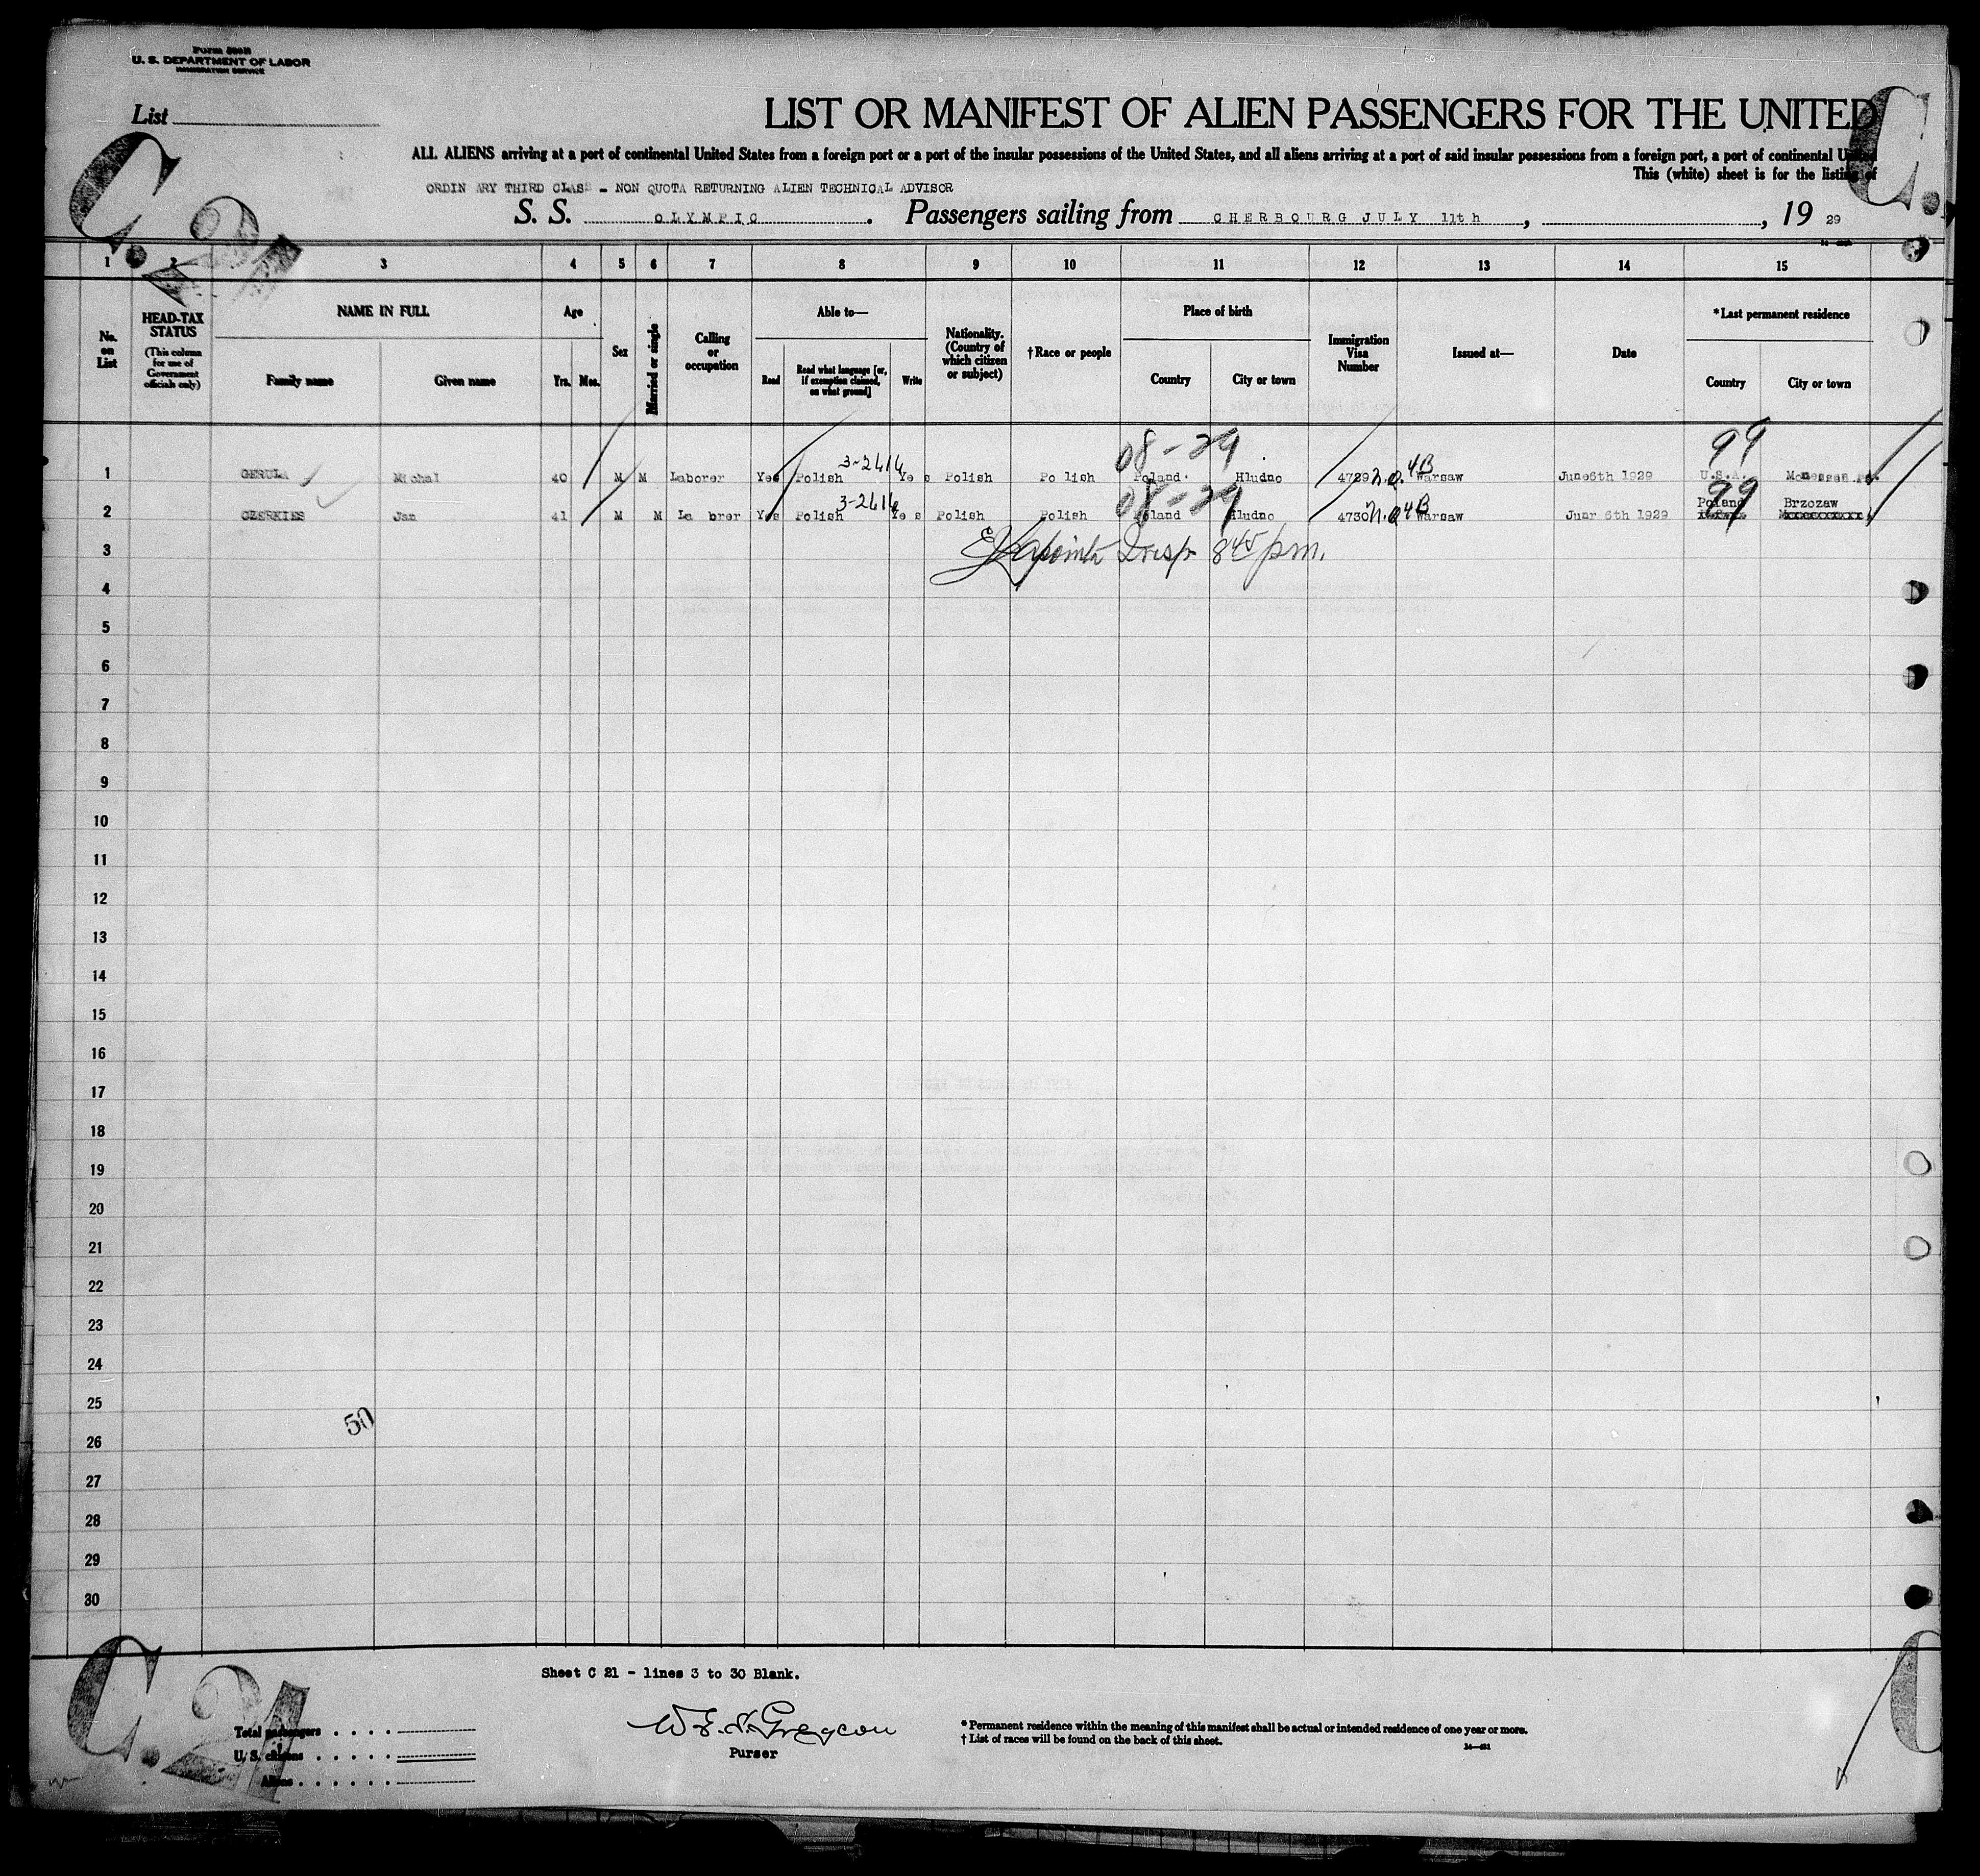 Form 500B
U. S. DEPARTMENT OF LABOR
IMMIGRATION SERVICE
List
LIST OR MANIFEST OF ALIEN PASSENGERS FOR THE UNITED
ALL ALIENS arriving at a port of continental United States from a foreign port or a port of the insular possessions of the United States, and all aliens arriving at a port of said insular possessions from a foreign port, a port of continental United
This (white) sheet is for the listing of
ORDIN ARY THIRD CLASS - NON QUOTA RETURNING ALIEN TECHNICAL ADVISOR
S. S. OLYMPIC. Passengers sailing from CHERBOURG JULY 11th, , 19 29
C. 21
C.
1 2 3 4 5 6 7 8 9 10 11 12 13 14 15
No. on List
HEAD-TAX STATUS (This column for use of Government officials only)
NAME IN FULL Family name Given name
Age Yrs. Mos.
Sex
Married or single
Calling or occupation
Able to— Read Read what language [or, if exemption claimed, on what ground] Write
Nationality. (Country of which citizen or subject)
†Race or people
Place of birth Country City or town
Immigration Visa Number
Issued at—
Date
*Last permanent residence Country City or town
08-29 99
3-2414 4B
1 GERULA Michal 40 M M Laborer Yes Polish Ye s Polish Po lish Poland Hludno 4729 n.q. Warsaw June6th 1929 U.S.A. Monessen Pa.
3-2414 08-29 4B 99 Poland Brzozaw
2 CZERKIES Jan 41 M M La brer Yes Polish Ye s Polish Polish Poland Hludno 4730 n.q Warsaw Junr 6th 1929
3 Insp 8 45 pm.
4
5
6
7
8
9
10
11
12
13
14
15
16
17
18
19
20
21
22
23
24
25
50
26
27
28
29
30
Sheet C 21 - lines 3 to 30 Blank.
C. 21
Total passengers
U. S. citizens
Aliens
Purser
* Permanent residence within the meaning of this manifest shall be actual or intended residence of one year or more.
† List of races will be found on the back of this sheet.